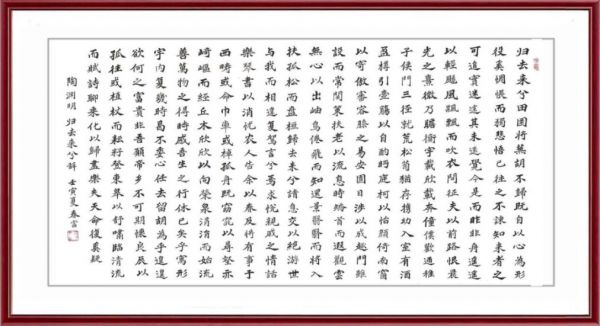 归去来兮田園將蕪胡不歸既自以心為形
役奚惆悵而獨悲悟已往之不諫知来者之
可追實迷途其未遠覺今是而昨非舟遥遥
以輕颺風飄飄而吹衣問征夫以前路恨晨
光之熹微乃瞻衡宇載欣載奔僮僕歡迎稚
子候門三徑就荒松菊猶存携幼入室有酒
盈樽引壺觴以自酌眄庭柯以怡顔倚南窗
以寄傲審容膝之易安園日涉以成趣門雖
設而常關策扶老以流憩時矯首而遐觀雲
無心以出岫鳥倦飛而知還景翳翳而將入
撫孤松而盤桓歸去来兮請息交以絶游世
與我而相違復駕言兮焉求悦親戚之情話
樂琴書以消憂农人告余以春及将有事于
西疇或命巾車或棹孤舟既窈窕以尋壑亦
崎嶇而經丘木欣欣以向榮泉涓涓而始流
善萬物之得時感吾生之行休已矣乎寓形
宇内復幾時曷不委心任去留胡為乎遑遑
欲何之富貴非吾願帝乡不可期懷良辰以
孤往或植杖而耘耔登東皋以舒嘯臨清流
而賦詩聊乘化以歸盡樂夫天命復奚疑
陶渊明 归去来兮辞 壬寅夏春